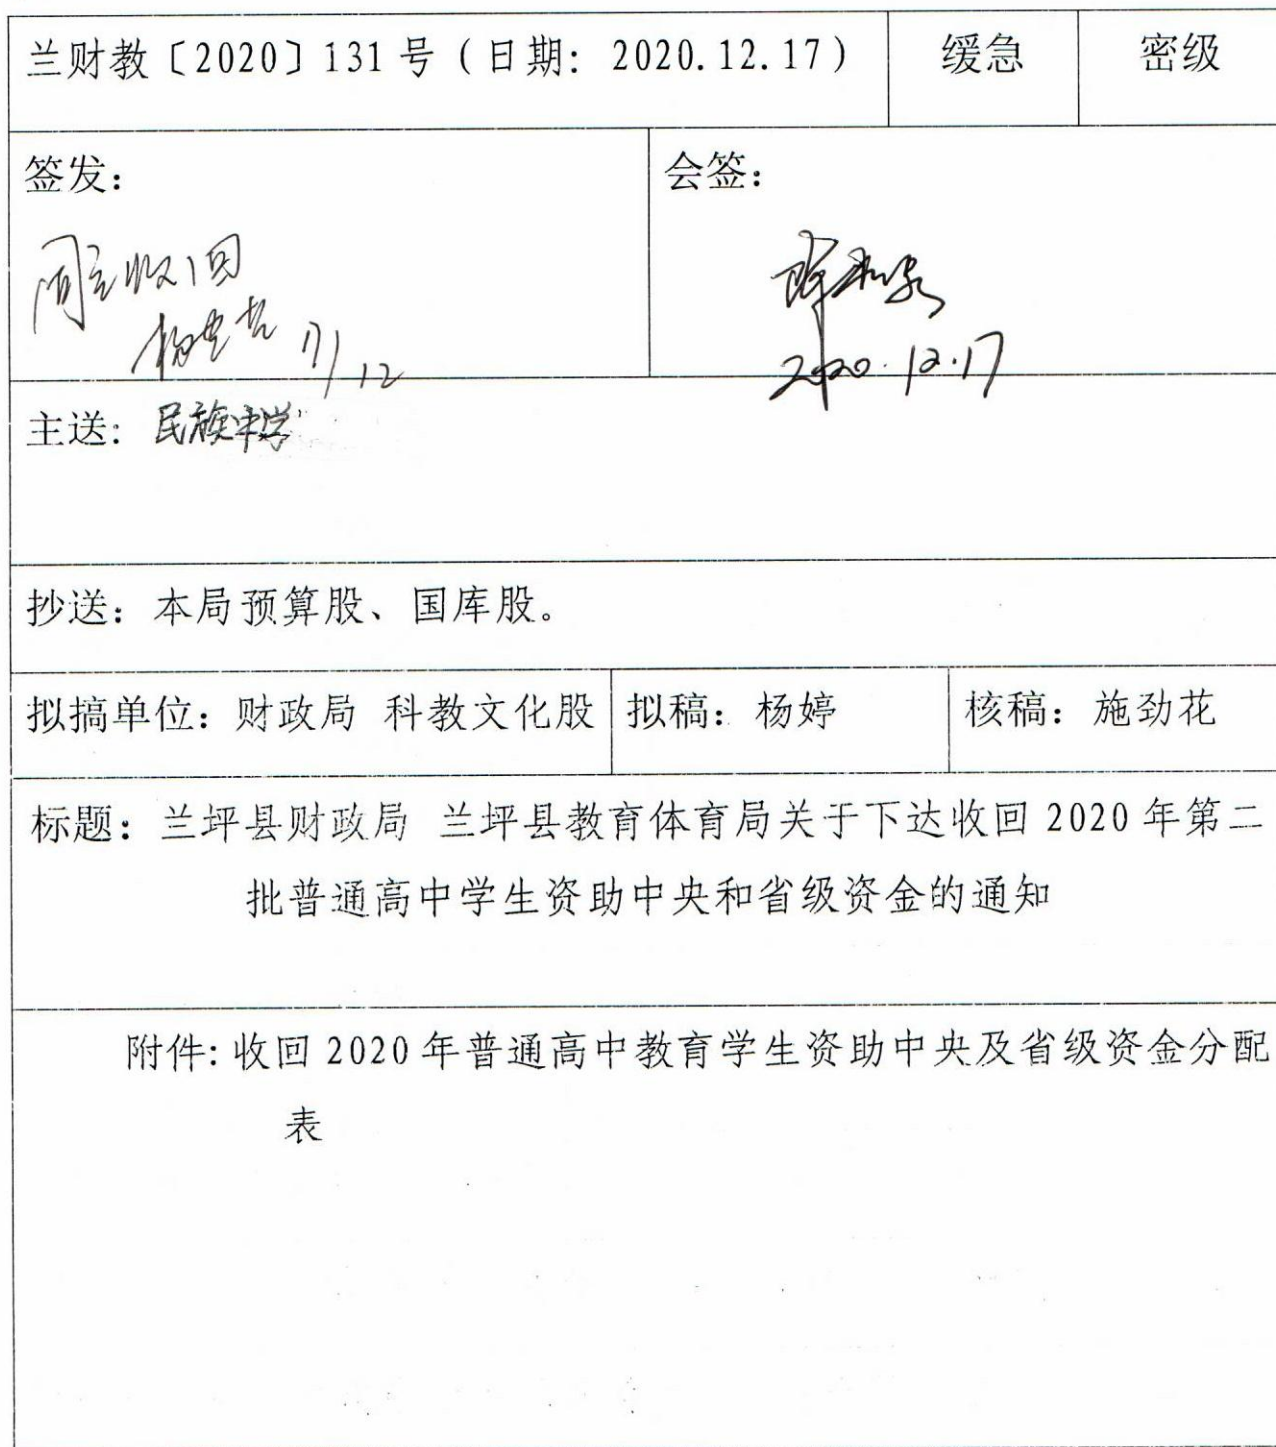 兰财教〔2020〕131号（日期：2020.12.17） 缓急 密级
签发： 会签：
同意收回
17/12
2020.12.17
主送：民族中学
抄送：本局预算股、国库股。
拟搞单位：财政局 科教文化股 拟稿：杨婷 核稿：施劲花
标题：兰坪县财政局 兰坪县教育体育局关于下达收回2020年第二
批普通高中学生资助中央和省级资金的通知
附件：收回2020年普通高中教育学生资助中央及省级资金分配
表